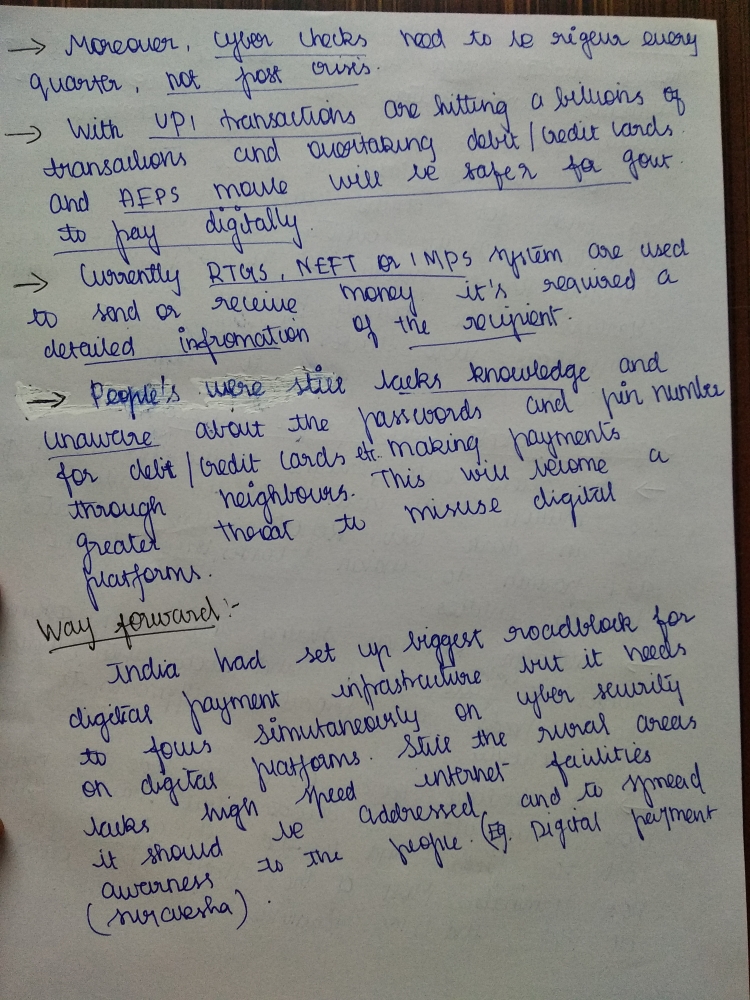 → Moreover, cyber checks need to be rigeur every
quarter, not post crisis.
→ With UPI transactions are hitting a billions of
transactions and overtaking debit/credit cards.
and AEPS moule will be safer for govt.
to pay digitally.
→ Currently RTGS, NEFT or IMPS system are used
to send or receive money it's required a
detailed infromation of the recipient.
→ People's were still lacks knowledge and
unaware about the passwords and pin number
for debt/credit cards etc. making payments
through neighbours. This will become a
greater threat to misuse digital
platforms.
Way forward:-
India had set up biggest roadblock for
digital payment infrastructure but it needs
to focus simutaneously on cyber security
on digital platforms. Still the rural areas
lacks high speed internet facilities
it should be addressed, and to spread
awarness to the people. (Eg. Digital payment
(suraksha).